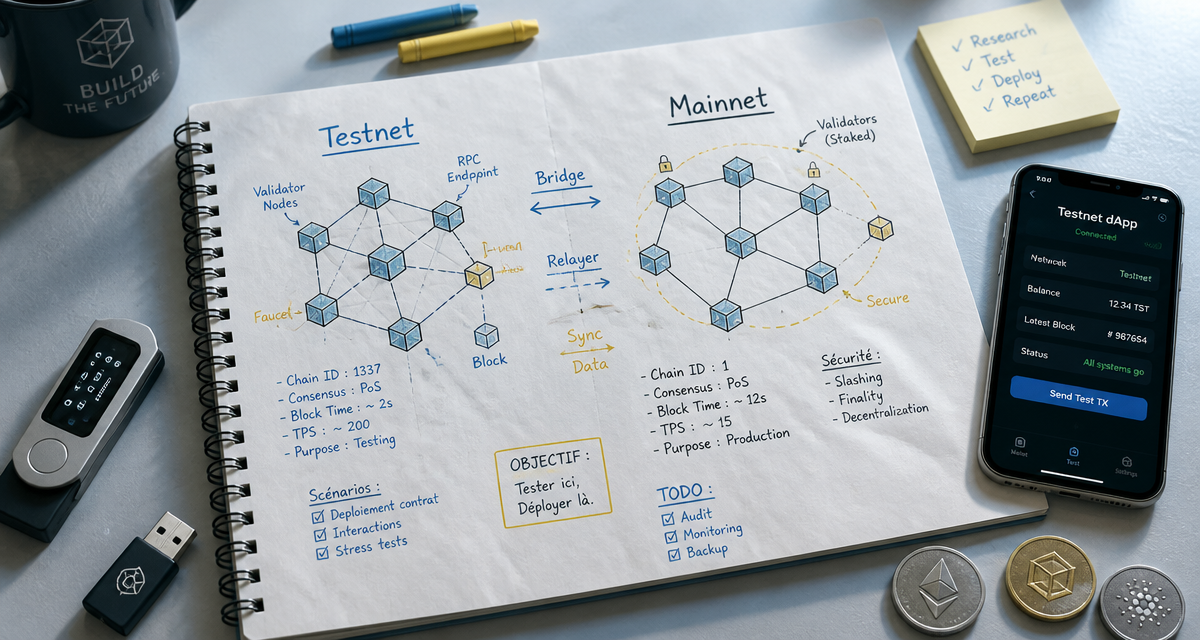 BUILD
THE FUTURE
Research
Test
Deploy
Repeat
Testnet
Mainnet
Validator
Nodes
RPC
Endpoint
Bridge
Validators
(Staked)
Relayer
Faucet
Block
Sync
Data
Secure
- Chain ID : 1337
- Consensus : PoS
- Block Time : ~ 2s
- TPS : ~ 200
- Purpose : Testing
- Chain ID : 1
- Consensus : PoS
- Block Time : ~ 12s
- TPS : ~ 15
- Purpose : Production
Sécurité :
- Slashing
- Finality
- Decentralization
Scénarios :
Deploiement contrat
Interactions
Stress tests
OBJECTIF :
Tester ici,
Déployer là.
TODO :
Audit
Monitoring
Backup
Testnet dApp
Connected
Network Testnet
Balance 12.34 TST
Latest Block # 987654
Status All systems go
Send Test TX
Test
Settings